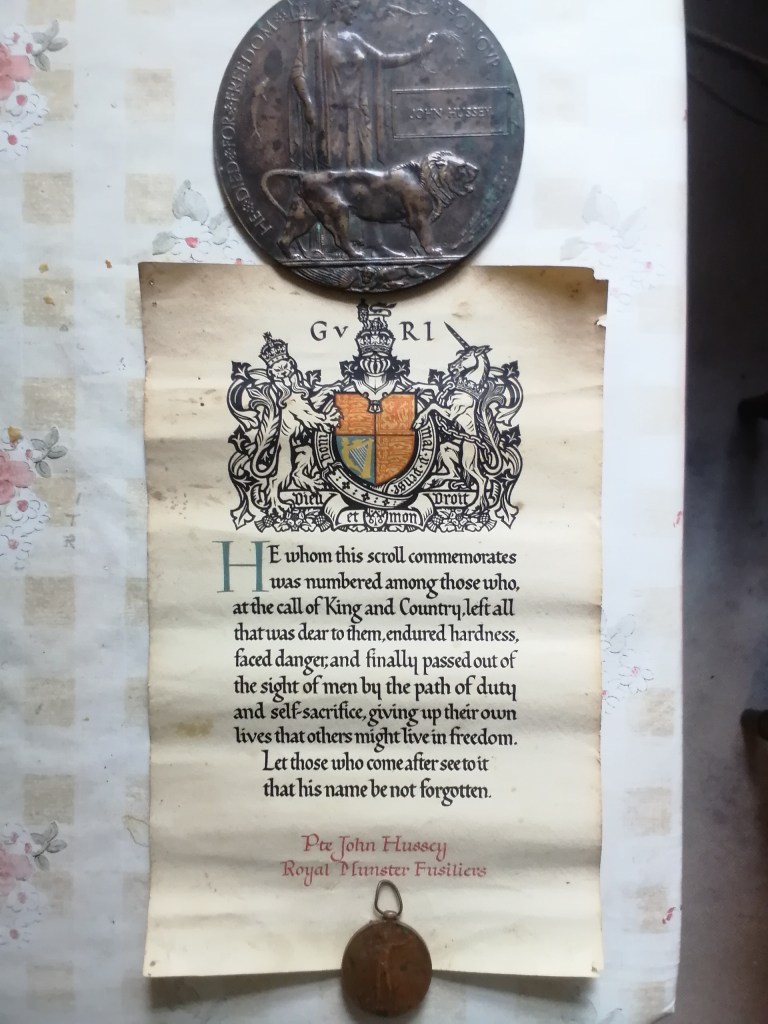 HE DIED FOR FREEDOM
HONOUR
JOHN HUSSEY
G V R I
Dieu
et mon
Droit
HE whom this scroll commemorates
was numbered among those who,
at the call of King and Country, left all
that was dear to them, endured hardness,
faced danger, and finally passed out of
the sight of men by the path of duty
and self-sacrifice, giving up their own
lives that others might live in freedom.
Let those who come after see to it
that his name be not forgotten.
Pte John Hussey
Royal Munster Fusiliers